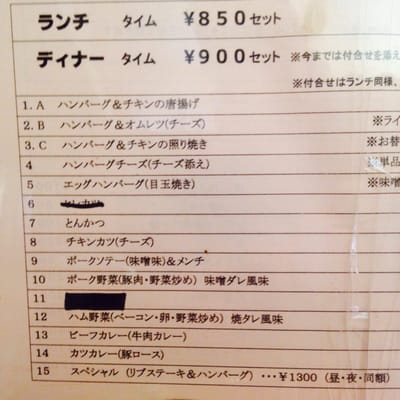 ランチ タイム ￥850セット
ディナー タイム ￥900セット ※今までは付合せを添え
※付合せはランチ同様、
1.A ハンバーグ＆チキンの唐揚げ
2.B ハンバーグ＆オムレツ(チーズ) ※ライ
3.C ハンバーグ＆チキンの照り焼き ※お替
4 ハンバーグチーズ(チーズ添え) ※単品
5 エッグハンバーグ(目玉焼き) ※味噌
6
7 とんかつ
8 チキンカツ(チーズ)
9 ポークソテー(味噌味)＆メンチ
10 ポーク野菜(豚肉・野菜炒め) 味噌ダレ風味
11
12 ハム野菜(ベーコン・卵・野菜炒め) 焼タレ風味
13 ビーフカレー(牛肉カレー)
14 カツカレー(豚ロース)
15 スペシャル (リブステーキ＆ハンバーグ) ・・・￥1300 (昼・夜・同額)